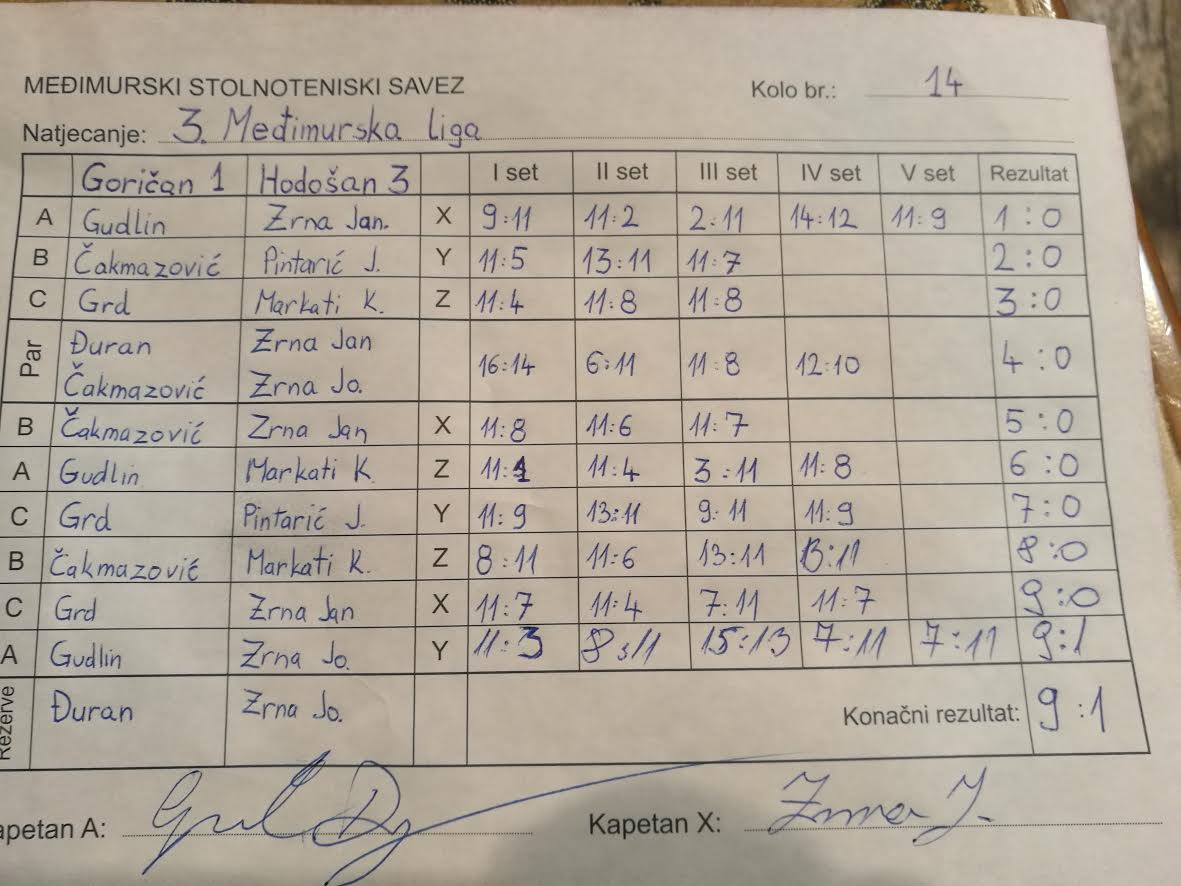 MEĐIMURSKI STOLNOTENISKI SAVEZ Kolo br.: 14
Natjecanje: 3. Međimurska liga
Goričan 1 Hodošan 3 I set II set III set IV set V set Rezultat
A Gudlin Zrna Jan. X 9:11 11:2 2:11 14:12 11:9 1:0
B Čakmazović Pintarić J. Y 11:5 13:11 11:7 2:0
C Grd Markati K. Z 11:4 11:8 11:8 3:0
Par Đuran Zrna Jan
Čakmazović Zrna Jo. 16:14 6:11 11:8 12:10 4:0
B Čakmazović Zrna Jan X 11:8 11:6 11:7 5:0
A Gudlin Markati K. Z 11:1 11:4 3:11 11:8 6:0
C Grd Pintarić J. Y 11:9 13:11 9:11 11:9 7:0
B Čakmazović Markati K. Z 8:11 11:6 13:11 13:11 8:0
C Grd Zrna Jan X 11:7 11:4 7:11 11:7 9:0
A Gudlin Zrna Jo. Y 11:3 8:11 15:13 7:11 7:11 9:1
Rezerve Đuran Zrna Jo. Konačni rezultat: 9:1
apetan A: Kapetan X: Zrna J.